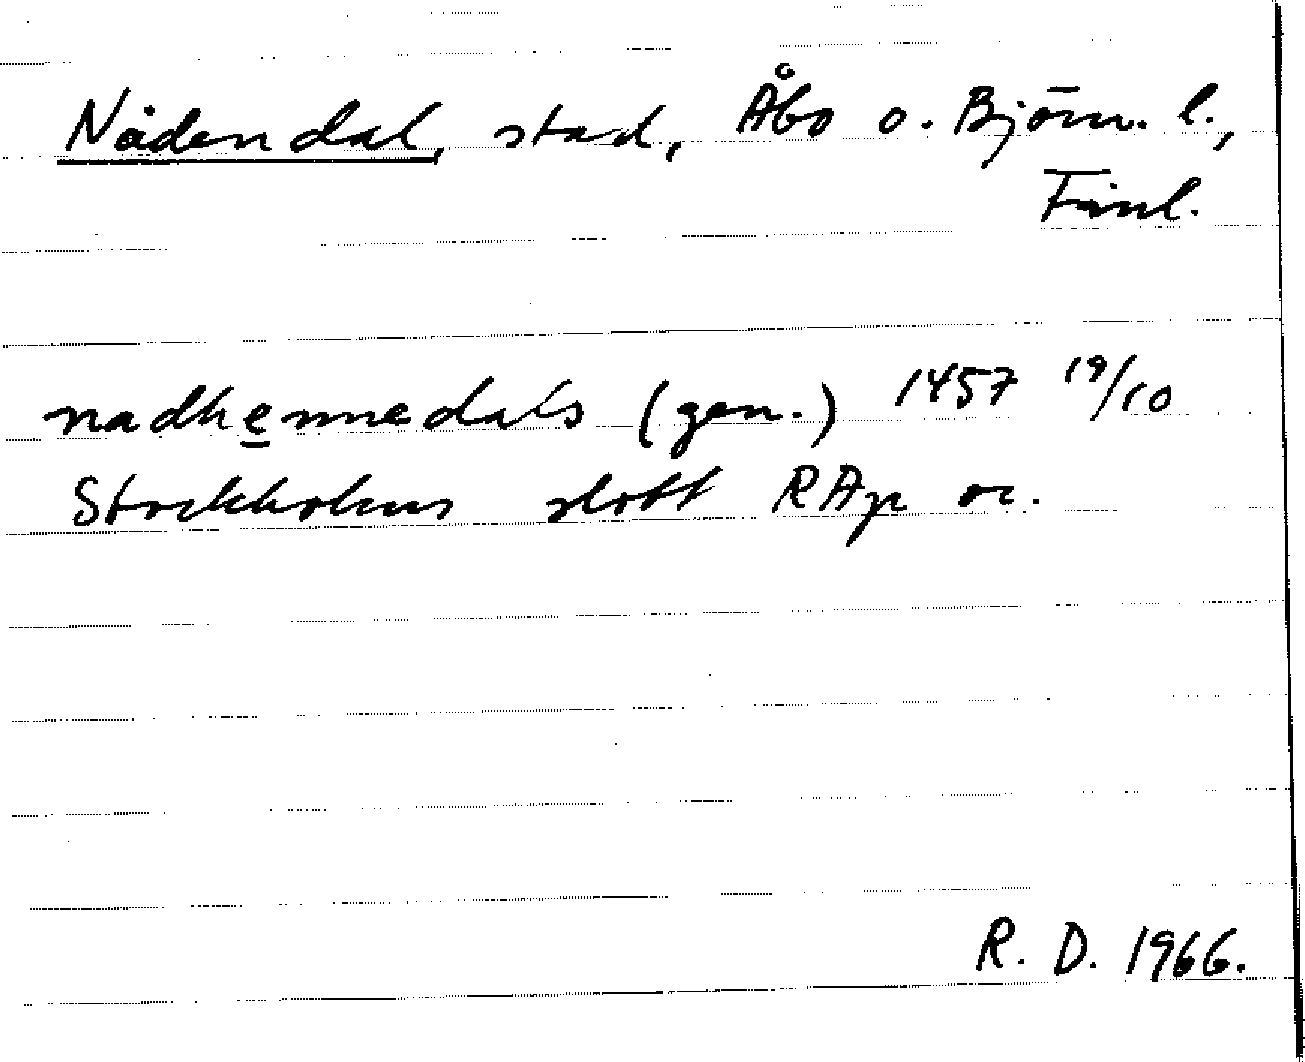 Nådendal, stad, Åbo o. Björn. l.,
Finl.
nadhennedals (gen.) 1457 19/10
Stockholms slott RAp or.
R. D. 1966.